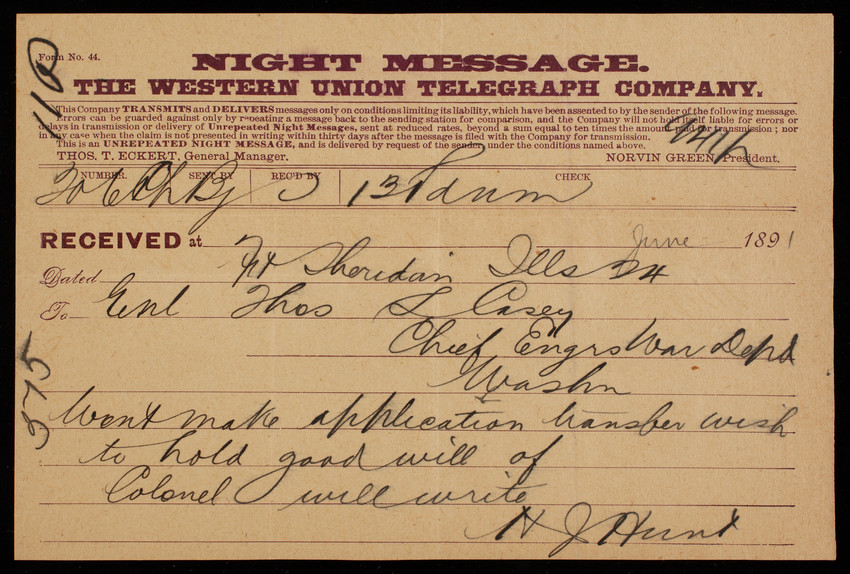 Form No. 44.
NIGHT MESSAGE.
THE WESTERN UNION TELEGRAPH COMPANY.
This Company TRANSMITS and DELIVERS messages only on conditions limiting its liability, which have been assented to by the sender of the following message.
Errors can be guarded against only by repeating a message back to the sending station for comparison, and the Company will not hold itself liable for errors or
delays in transmission or delivery of Unrepeated Night Messages, sent at reduced rates, beyond a sum equal to ten times the amount paid for transmission; nor
in any case when the claim is not presented in writing within thirty days after the message is filed with the Company for transmission.
This is an UNREPEATED NIGHT MESSAGE, and is delivered by request of the sender under the conditions named above.
THOS. T. ECKERT, General Manager. NORVIN GREEN, President.
NUMBER. SENT BY REC'D BY CHECK
13
RECEIVED at June 1891
Dated Ft Sheridan Ills 24
To Genl Thos L Casey
Chief Engrs War Dept
Washn
Wont make application transfer wish
to hold good will of
Colonel will write
H J Hunt
375